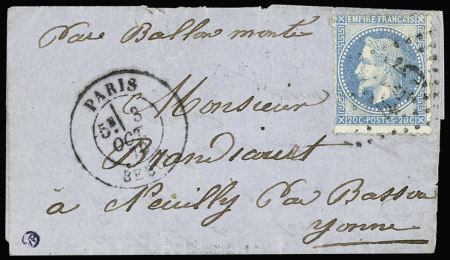 Par Ballon monté
EMPIRE FRANÇAIS
20C-POSTES-20C
PARIS
3
OCT.
Monsieur
à Neuilly Par Bassou
Yonne